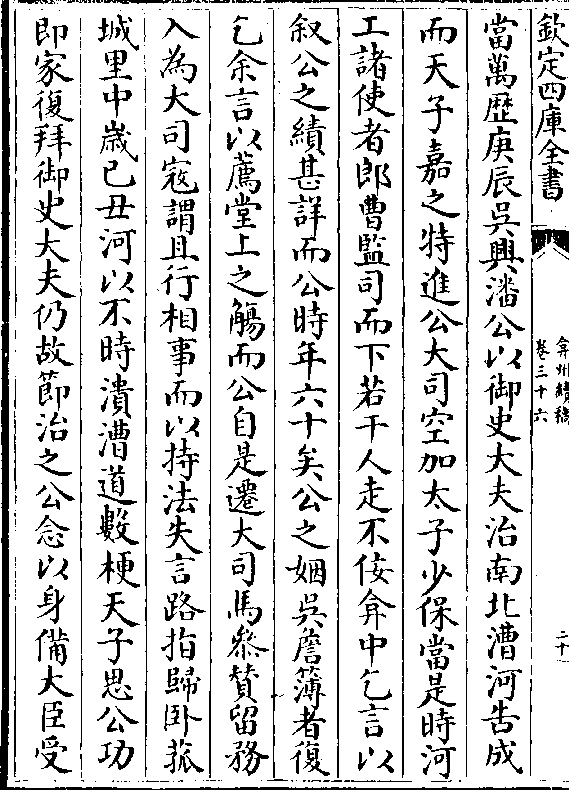 欽定四庫全書
弇州續稿
卷三十六
二十一
當萬歷庚辰吳興潘公以御史大夫治南北漕河告成
而天子嘉之特進公大司空加太子少保當是時河
工諸使者郎曹監司而下若干人走不佞弇中乞言以
叙公之績甚詳而公時年六十矣公之姻吳詹簿者復
乞余言以薦堂上之觴而公自是遷大司馬叅贊留務
入為大司寇謂且行相事而以持法失言路指歸卧菰
城里中嵗己丑河以不時潰漕道數梗天子思公功
即家復拜御史大夫仍故節治之公念以身備大臣受